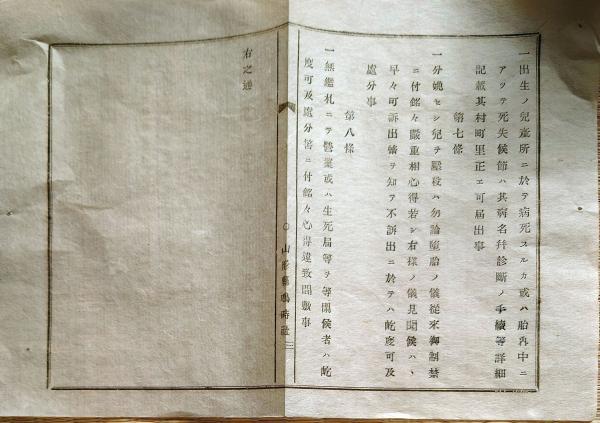 一出生ノ兒產所ニ於テ病死スルカ或ハ胎內中ニ
アツテ死失候節ハ其病名幷診斷ノ手續等詳細
記載其村町里正エ可屆出事
第七條
一分娩セシ兒ヲ壓殺ハ勿論墮胎ノ儀從來御制禁
ニ付銘々嚴重相心得若シ右樣ノ儀見聞候ハヽ
早々可訴出儀ヲ知テ不訴出ニ於テハ屹度可及
處分事
第八條
一無鑑札ニテ營業或ハ生死屆等ヲ等閑候者ハ屹
度可及處分筈ニ付銘々心得違致間敷事
○山形縣鳴時社
三
右之通